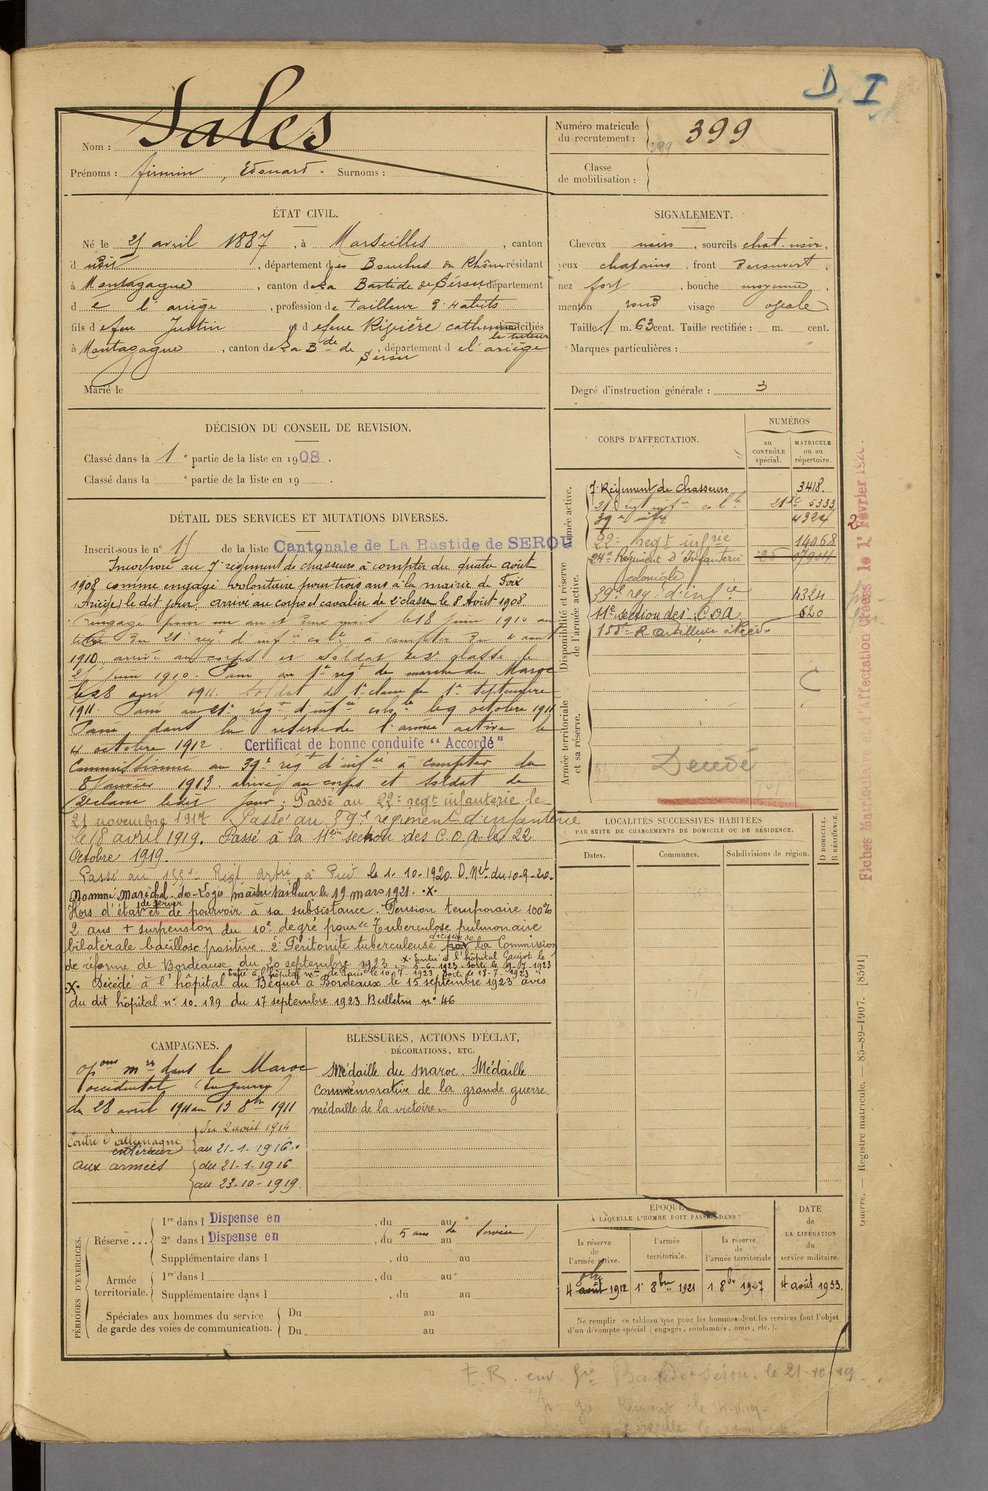 D. I
Nom : Sales
Prénoms : Firmin, Edouard. Surnoms :
Numéro matricule du recrutement : 399
Classe de mobilisation :
ÉTAT CIVIL.
Né le 21 avril 1887, à Marseilles, canton
d, département des Bouches du Rhône, résidant
à Montagagne, canton de La Bastide de Sérou, département
de l'ariège, profession de tailleur d'habits
fils de feu Justin et de feue Rivière catherine domiciliés
le tuteur
à Montagagne, canton de La Bde de Sérou, département de l'ariège
Marié le
SIGNALEMENT.
Cheveux noirs, sourcils chat. noir,
yeux chatains, front découvert,
nez fort, bouche moyenne,
menton rond visage ovale
Taille 1 m. 63 cent. Taille rectifiée : m. cent.
Marques particulières :
Degré d'instruction générale : 3
DÉCISION DU CONSEIL DE REVISION.
Classé dans la 1e partie de la liste en 1908.
Classé dans la e partie de la liste en 19
DÉTAIL DES SERVICES ET MUTATIONS DIVERSES.
Inscrit sous le n° 15 de la liste Cantonale de La Bastide de SEROU
Incorporé au régiment de chasseurs à compter du quatre août
1908 comme engagé volontaire pour trois ans à la mairie de Foix
(Ariège) le dit jour, arrivé au corps et cavalier de 2e classe le 8 Août 1908.
Rengagé pour un an le 18 juin 1910 au
titre du 21e régt d'infie colle à compter du 4 août
1910, arrivé au corps et soldat de 2e classe le
juin 1910. Passé au 1er régt de marche du Maroc
le 28 avril 1911. Soldat de 1e classe le 1er septembre
1911. Passé au 21e régt d'infie colle le 9 octobre 1911
Passé dans la réserve de l'armée active le
4 octobre 1912. Certificat de bonne conduite "Accordé"
Commissionné au 39e régt d'infie à compter du
8 janvier 1913. arrivé au corps et soldat de
2e classe ledit jour. Passé au 22e regt infanterie le
21 novembre 1917 Passé au 39e régiment d'infanterie
le 18 avril 1919. Passé à la 11eme section des C.O.A. le 22
Octobre 1919.
Passé au 155e Régt Artie à Pied le 1.10.1920 D. Mlle du 10-9-20.
Nommé Maréchal-des-Logis maître tailleur le 19 mars 1921. x.
Hors d'état de servir et de pourvoir à sa subsistance. Pension temporaire 100%
2 ans + suspension du 10e degré pour "Tuberculose pulmonaire
bilatérale bacillose positive. 2° Péritonite tuberculeuse décision de la Commission
de réforme de Bordeaux du 20 septembre 1923
x. Décédé à l'hôpital du Béquet à Bordeaux le 15 septembre 1923 avis
du dit hôpital n° 10.189 du 17 septembre 1923 Bulletin n° 46
CORPS D'AFFECTATION.
NUMÉROS
au CONTRÔLE spécial.
MATRICULE ou au répertoire.
Armée active.
Régiment de chasseurs 3418.
21e régt infie colle 5333
39e infie 4324
Disponibilité et réserve de l'armée active.
22e regt infrie 14068
Régiment d'Infanterie Coloniale
39e reg. d'infie 4324
11e section des C.O.A 620
155e R. artillerie à Pied.
Armée territoriale et sa réserve.
Décédé
LOCALITÉS SUCCESSIVES HABITÉES
PAR SUITE DE CHANGEMENTS DE DOMICILE OU DE RÉSIDENCE.
Dates. Communes. Subdivisions de région. D DOMICILE. R RÉSIDENCE.
CAMPAGNES.
opons mres dans le Maroc
occidental (en guerre)
du 28 avril 1911 au 13 8bre 1911
Contre l'allemagne
intérieur { du 2 août 1914
au 21-1-1916.
aux armées { du 21-1-1916
au 23-10-1919.
BLESSURES, ACTIONS D'ÉCLAT,
DÉCORATIONS, ETC.
Médaille du maroc. Médaille
commémorative de la grande guerre
médaille de la victoire.
PÉRIODES D'EXERCICES.
Réserve ...
1re dans l Dispense en, du au
2e dans l Dispense en, du au
5 ans de service
Supplémentaire dans l, du au
Armée territoriale.
1re dans l, du au
Supplémentaire dans l, du au
Spéciales aux hommes du service
de garde des voies de communication.
Du au
Du au
ÉPOQUE
À LAQUELLE L'HOMME DOIT PASSER DANS :
la réserve de l'armée active.
l'armée territoriale.
la réserve de l'armée territoriale
DATE de LA LIBÉRATION du service militaire.
4 août 1912
1er 8bre 1921
1 8bre 1927
4 août 1933.
Ne remplir ce tableau que pour les hommes dont les services font l'objet
d'un décompte spécial (engagés, condamnés, omis, etc.).
Guerre. — Registre matricule. — 85-89-1907. [8591]